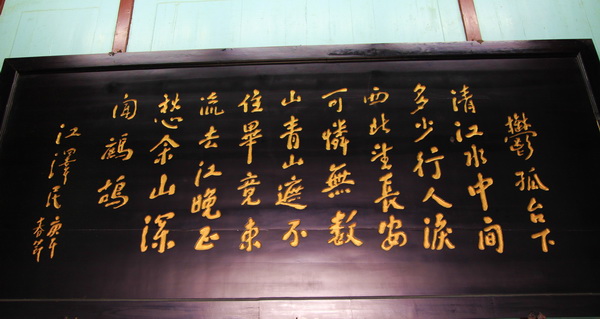 鬱孤台下
清江水中間
多少行人淚
西北望長安
可憐無數
山青山遮不
住畢竟東
流去江晚正
愁余山深
聞鷓鴣
江澤民
庚午
春节